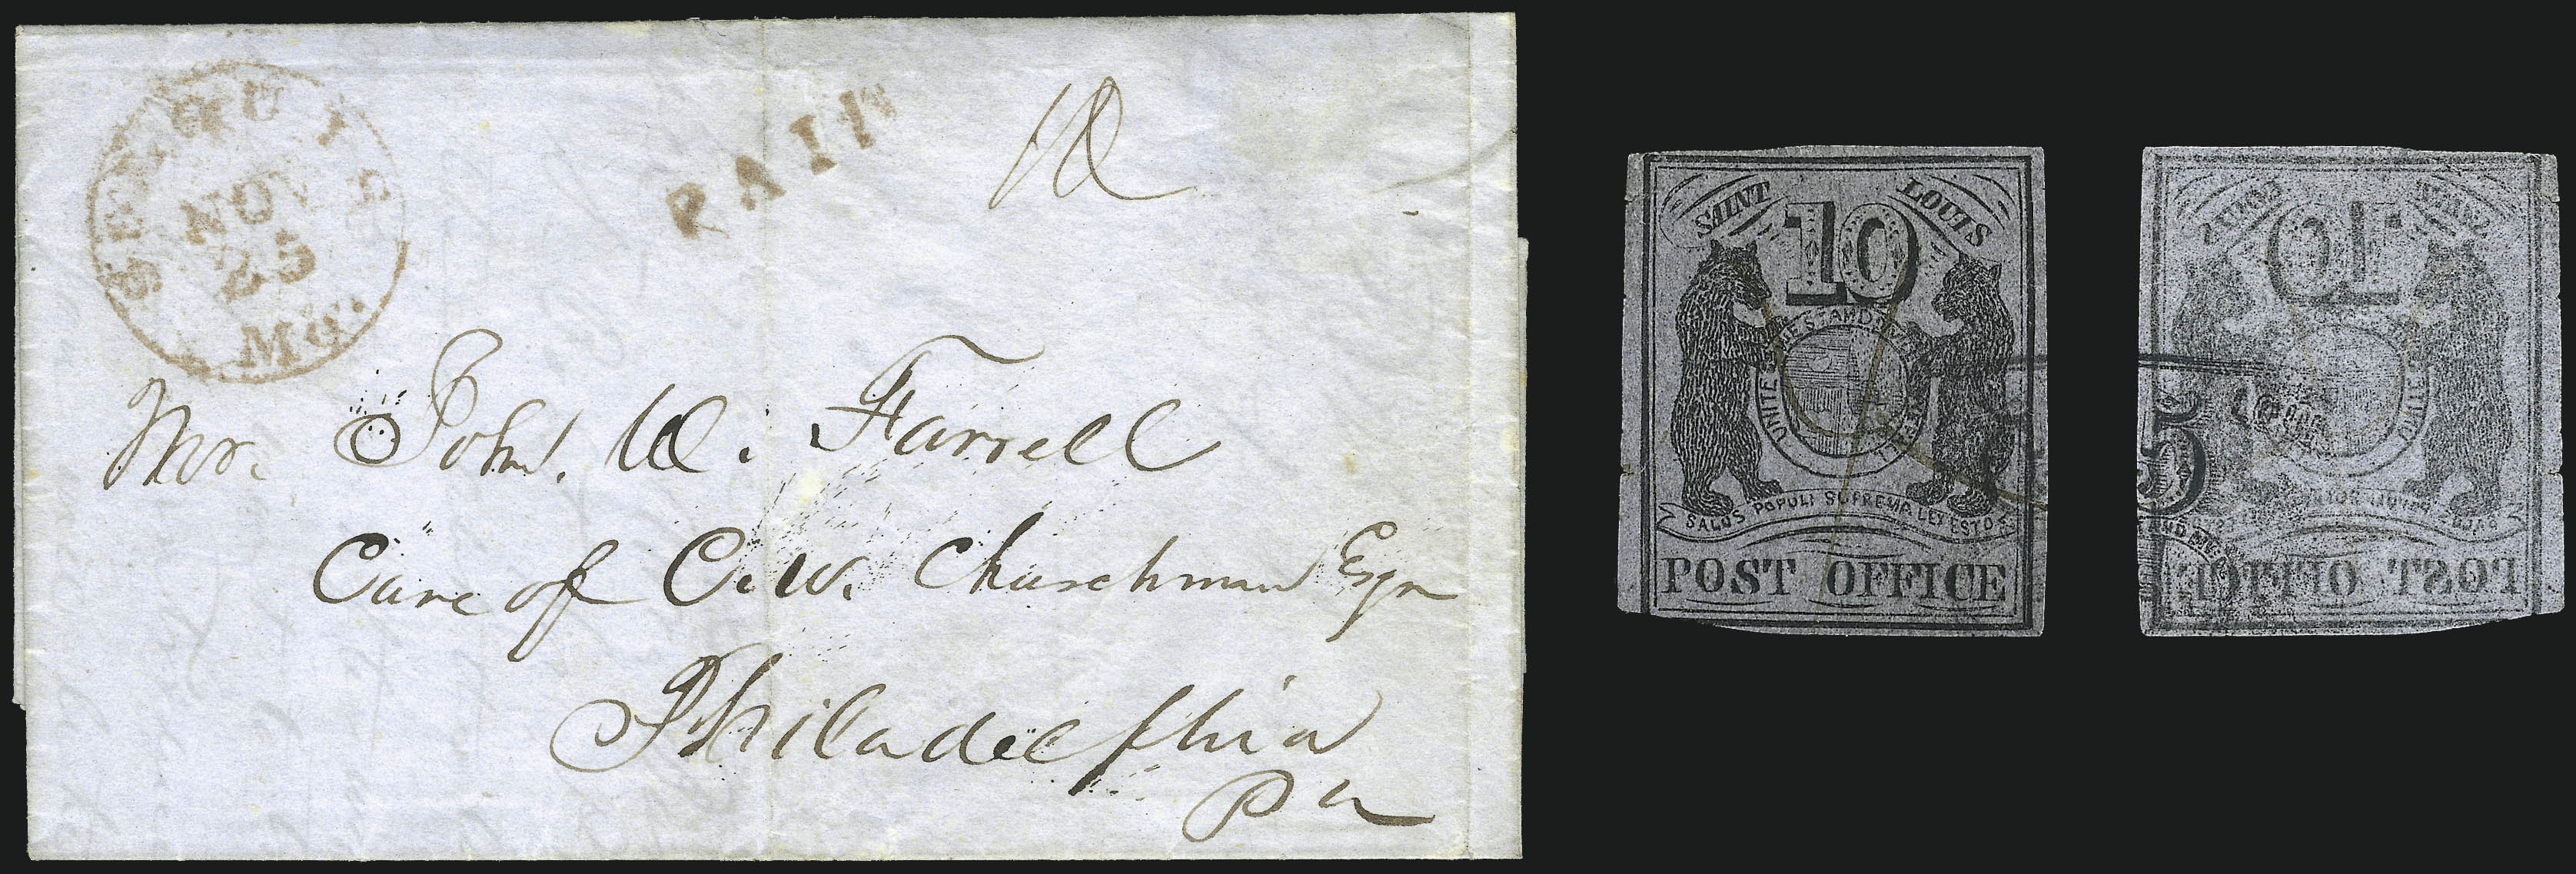 ST. LOUIS
NOV
25
Mo.
PAID
10
Mr. John. W. Farrell
Care of C. W. Churchman Esqr
Philadelphia
Pa
SAINT LOUIS
10
UNITED WE STAND DIVIDED WE FALL
SALUS POPULI SUPREMA LEX ESTO
POST OFFICE
SAINT LOUIS
10
5
POST OFFICE